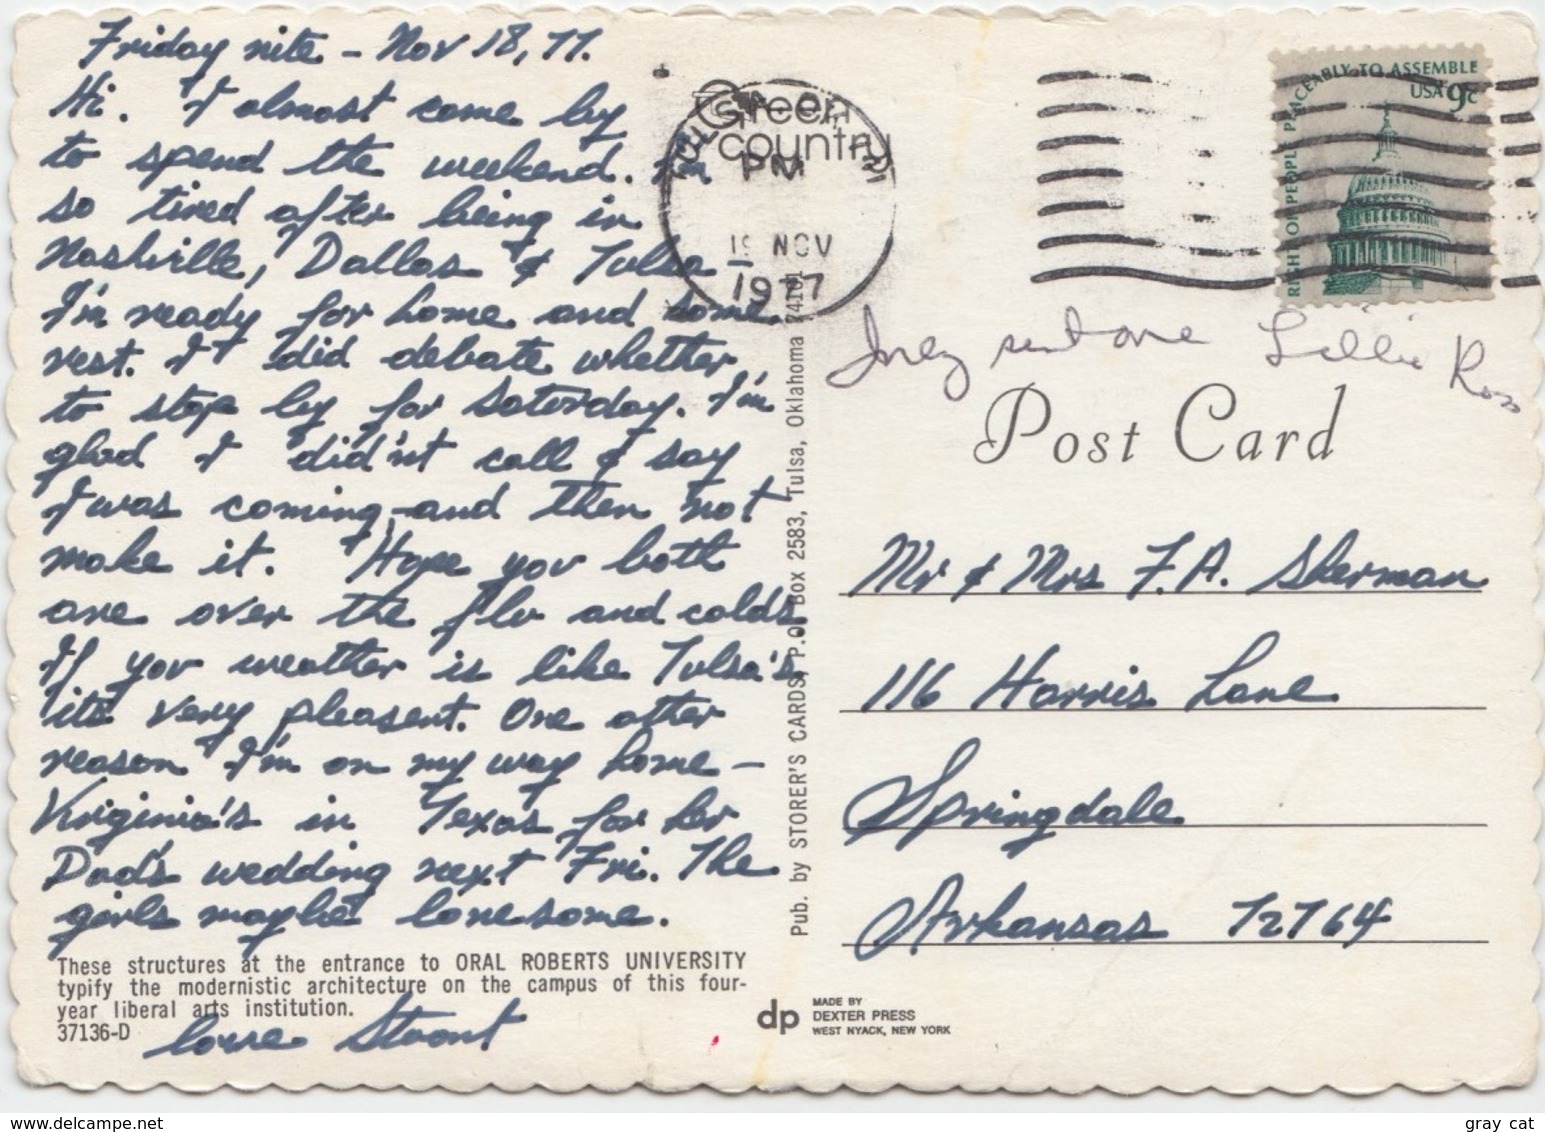 Friday nite - Nov 18, 77.
Hi. I almost come by
to spend the weekend. I'm
so tired after being in
Nashville, Dallas & Tulsa
I'm ready for home and some
rest. I did debate whether
to stop by for Saturday. I'm
glad I didn't call & say
I was coming, and then not
make it. Hope you both
are over the flu and colds.
If your weather is like Tulsa's,
its very pleasent. One other
reason I'm on my way home -
Virginia's in Texas for her
Dad's wedding next Fri. The
girls maybe lonesome.
These structures at the entrance to ORAL ROBERTS UNIVERSITY
typify the modernistic architecture on the campus of this four-
year liberal arts institution.
37136-D
Love Stuart
Pub. by STORER'S CARDS, P.O. Box 2583, Tulsa, Oklahoma 74101
dp
MADE BY
DEXTER PRESS
WEST NYACK, NEW YORK
Green
country
PM
19 NOV
1977
RIGHT OF PEOPLE PEACEABLY TO ASSEMBLE
USA 9c
sent one Lillie Ross
Post Card
Mr & Mrs F.A. Sherman
116 Harris Lane
Springdale
Arkansas 72764
gray cat
www.delcampe.net